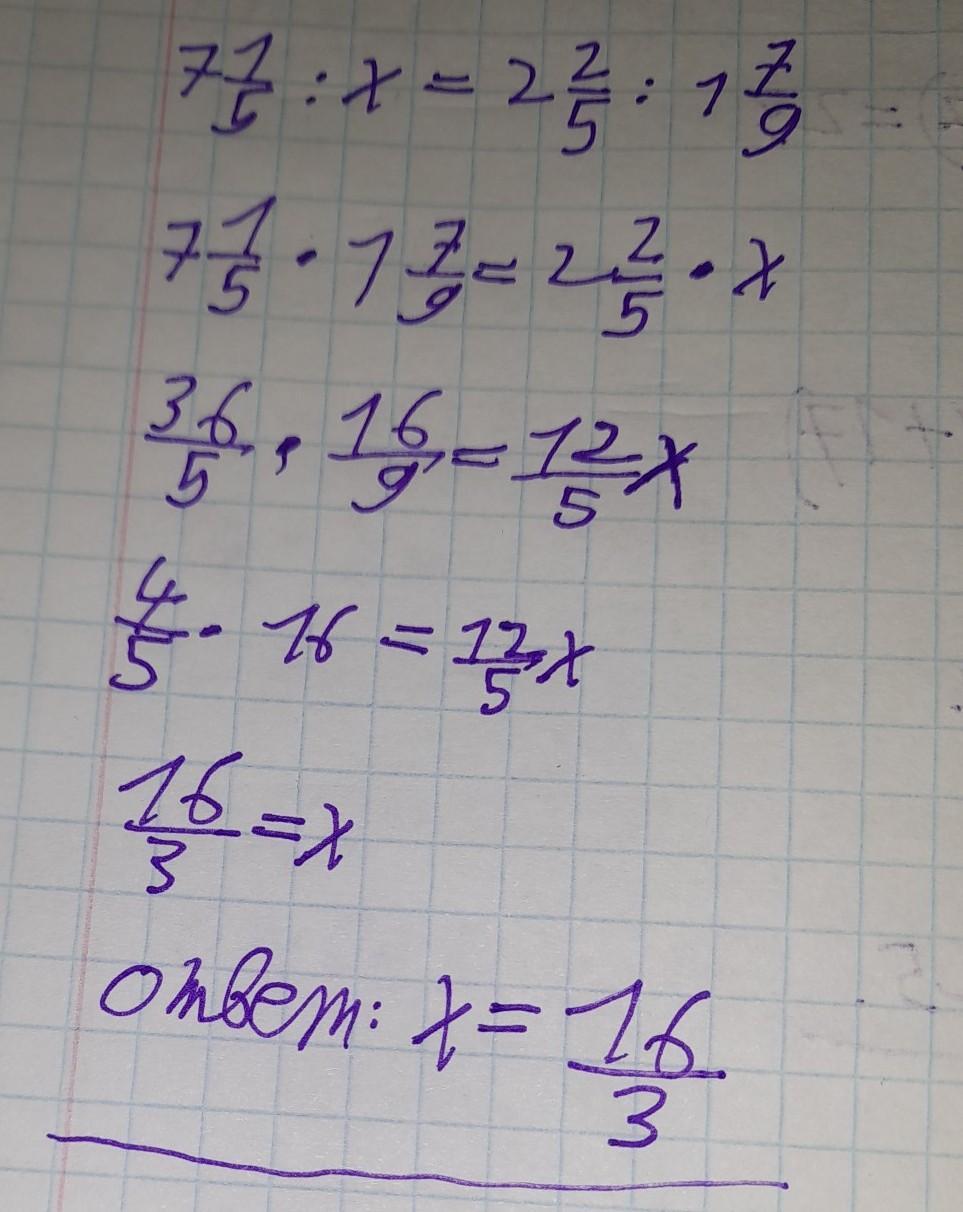 7 1/5 : x = 2 2/5 : 1 7/9
7 1/5 · 1 7/9 = 2 2/5 · x
36/5 · 16/9 = 12/5 x
4/5 · 16 = 12/5 x
16/3 = x
ответ: x = 16/3